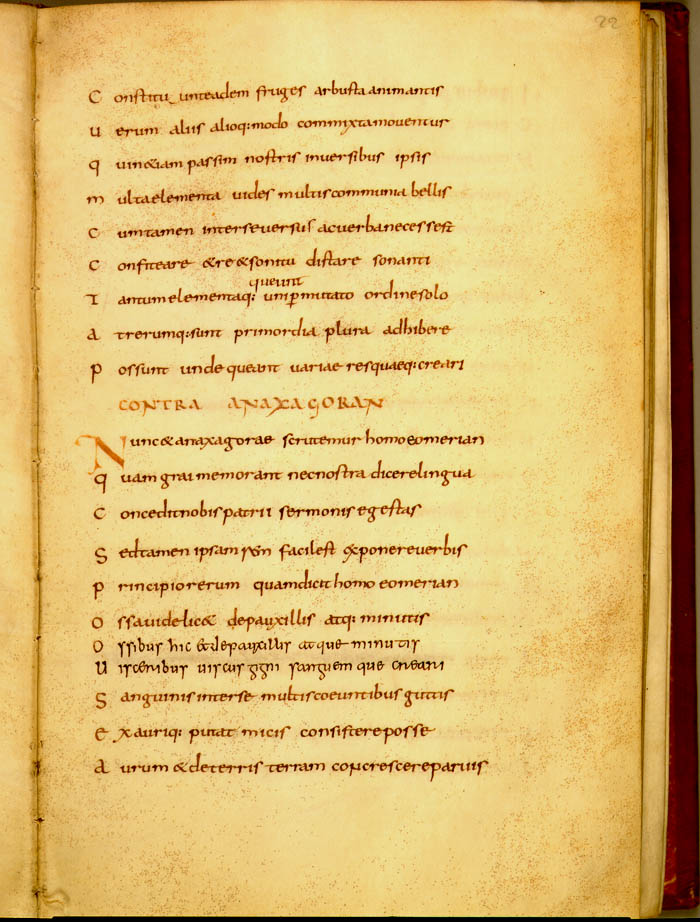 22
C onstitu unteadem fruges arbusta animantis
U erum aliis alioq: modo commixta mouentur
q uin&iam passim nostris inuersibus ipsis
m ulta elementa uides multis communia bellis
C umtamen interse uersus acuerba necessest
C onfiteare &re&sonitu distare sonanti
queunt
T antum elementaq: uni permutato ordine solo
A trerumq: sunt primordia plura adhibere
P ossunt unde queant uariae resquaeq: creari
CONTRA ANAXAGORAN
Nunc&anaxagorae scrutemur homoeomerian
Quam grai memorant nec nostra dicere lingua
C oncedit nobis patrii sermonis egestas
S edtamen ipsam facilest exponere uerbis
P rincipio rerum quam dicit homoeomerian
O ssa uidelic& depauxillis atq: minutis
O ssibus hic et depauxillis atque minutis
U isceribus uiscus gigni sanguem que creari
S anguinis interse multis coeuntibus guttis
e x auriq: putat micis consistere posse
A urum &deterris terram concrescere paruis